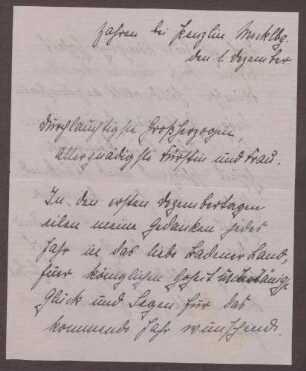 Jahren bei Penzlin Mecklbg.
den 1. Dezember
Durchlauchtigste Großherzogin,
allergnädigste Fürstin und Frau.
In den ersten Dezembertagen
eilen meine Gedanken jedes
Jahr in das liebe Badner Land,
Euer königlichen Hoheit
Glück und Segen für das
kommende Jahr wünschend.